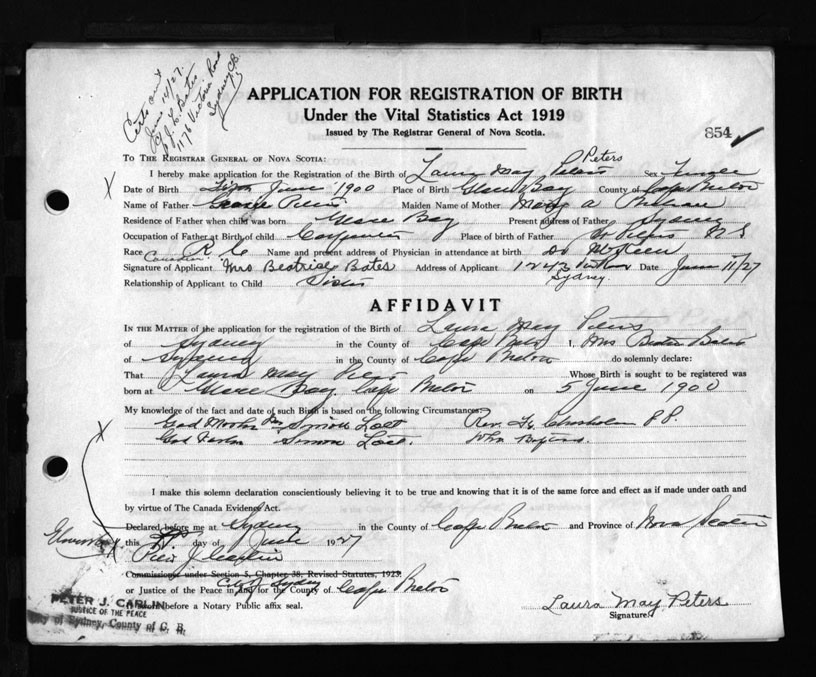 Certs out
June 14/27.
1176 Victoria Road
Sydney C.B.
APPLICATION FOR REGISTRATION OF BIRTH
Under the Vital Statistics Act 1919
Issued by The Registrar General of Nova Scotia.
854 ✓
TO THE REGISTRAR GENERAL OF NOVA SCOTIA:
Peters
I hereby make application for the Registration of the Birth of Laura May Peters Sex Female
X
Date of Birth Fifth June 1900 Place of Birth Glace Bay County of Cape Breton
Name of Father George Peters Maiden Name of Mother Mary A
Residence of Father when child was born Glace Bay Present address of Father Sydney
Occupation of Father at Birth of child Carpenter Place of birth of Father St Peters N S
Race R C Name and present address of Physician in attendance at birth Dr McKeen
Canadian
Signature of Applicant Mrs Beatrice Bates Address of Applicant 1243 Date June 11/27
Sydney
Relationship of Applicant to Child Sister
AFFIDAVIT
IN THE MATTER of the application for the registration of the Birth of Laura May Peters
of Sydney in the County of Cape Breton I, Mrs Bates
of Sydney in the County of Cape Breton do solemnly declare:
That Laura May Peters Whose Birth is sought to be registered was
born at Glace Bay, Cape Breton on 5 June 1900
My knowledge of the fact and date of such Birth is based on the following Circumstances:
God Mother Mrs Simon Lott Rev. Chisholm P.P.
God Father Simon Lott. John Baptiste.
X
I make this solemn declaration conscientiously believing it to be true and knowing that it is of the same force and effect as if made under oath and
by virtue of The Canada Evidence Act.
Declared before me at Sydney in the County of Cape Breton and Province of Nova Scotia
this day of June 1927
Peter J Carlin
Commissioned under Section 5, Chapter 38, Revised Statutes, 1923.
City of Sydney
or Justice of the Peace in and for the County of Cape Breton
If sworn before a Notary Public affix seal.
PETER J. CARLIN
JUSTICE OF THE PEACE
City of Sydney, County of C. B.
Laura May Peters
Signature.